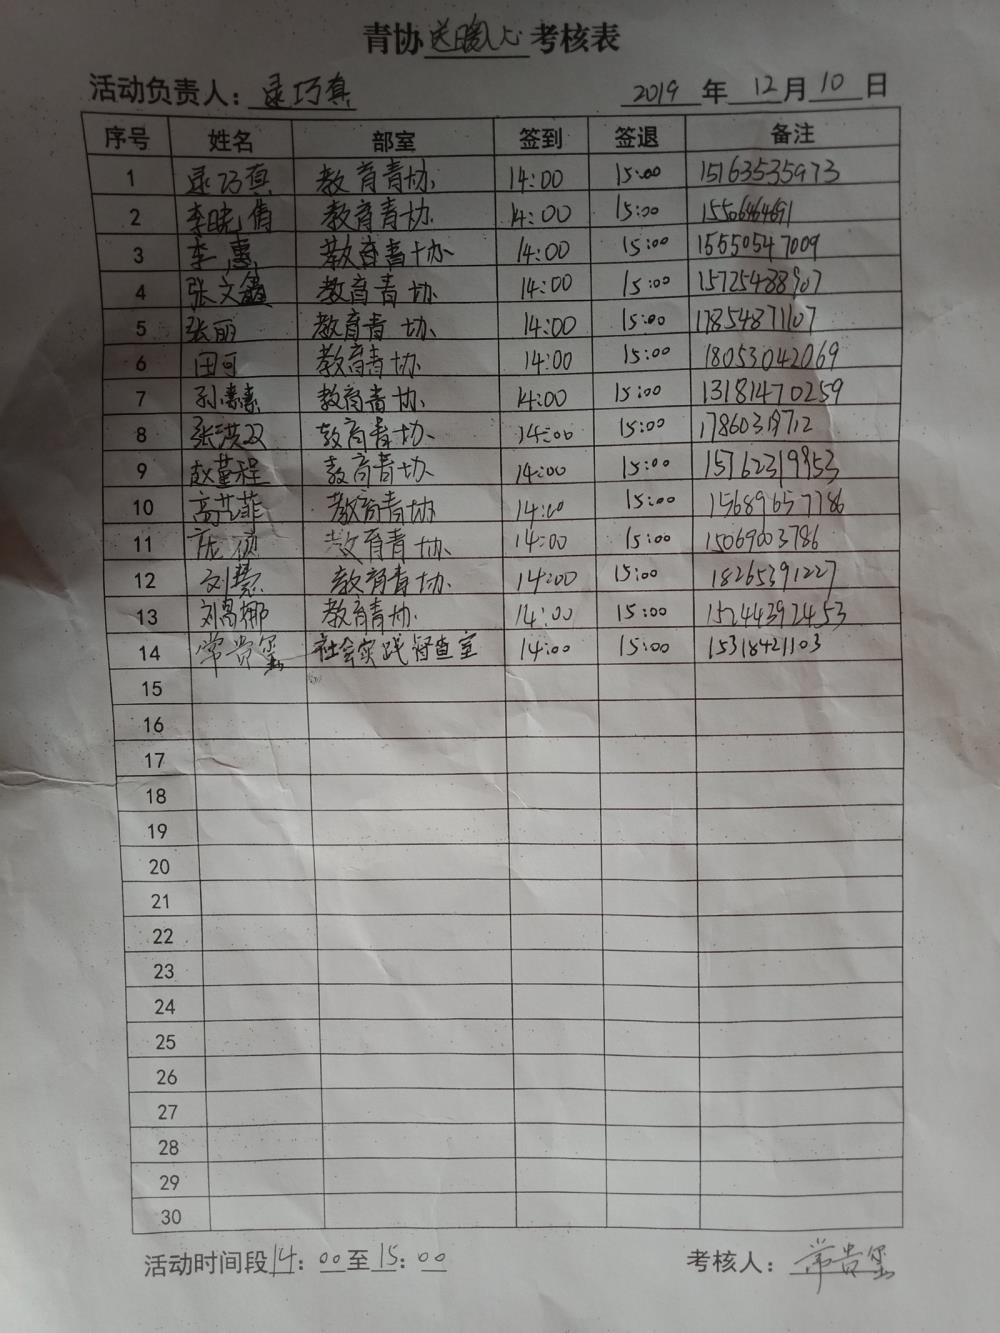 青协送暖心考核表
活动负责人：录巧真 2019年12月10日
序号 姓名 部室 签到 签退 备注
1 录巧真 教育青协 14:00 15:00 15163535973
2 李晓倩 教育青协 14:00 15:00
3 李惠 教育青协 14:00 15:00 15550547009
4 张文鑫 教育青协 14:00 15:00 15725488907
5 张丽 教育青协 14:00 15:00 17854871107
6 田可 教育青协 14:00 15:00 18053042069
7 孙素素 教育青协 14:00 15:00 13181470259
8 张洪双 教育青协 14:00 15:00
9 赵堇程 教育青协 14:00 15:00 15762319953
10 高艺菲 教育青协 14:00 15:00 15689657786
11 庞硕 教育青协 14:00 15:00 15069003786
12 刘慧 教育青协 14:00 15:00 18265391227
13 刘昌娜 教育青协 14:00 15:00 15244392453
14 常贵玺 社会实践督查室 14:00 15:00 15318421103
15
16
17
18
19
20
21
22
23
24
25
26
27
28
29
30
活动时间段14:00至15:00 考核人：常贵玺